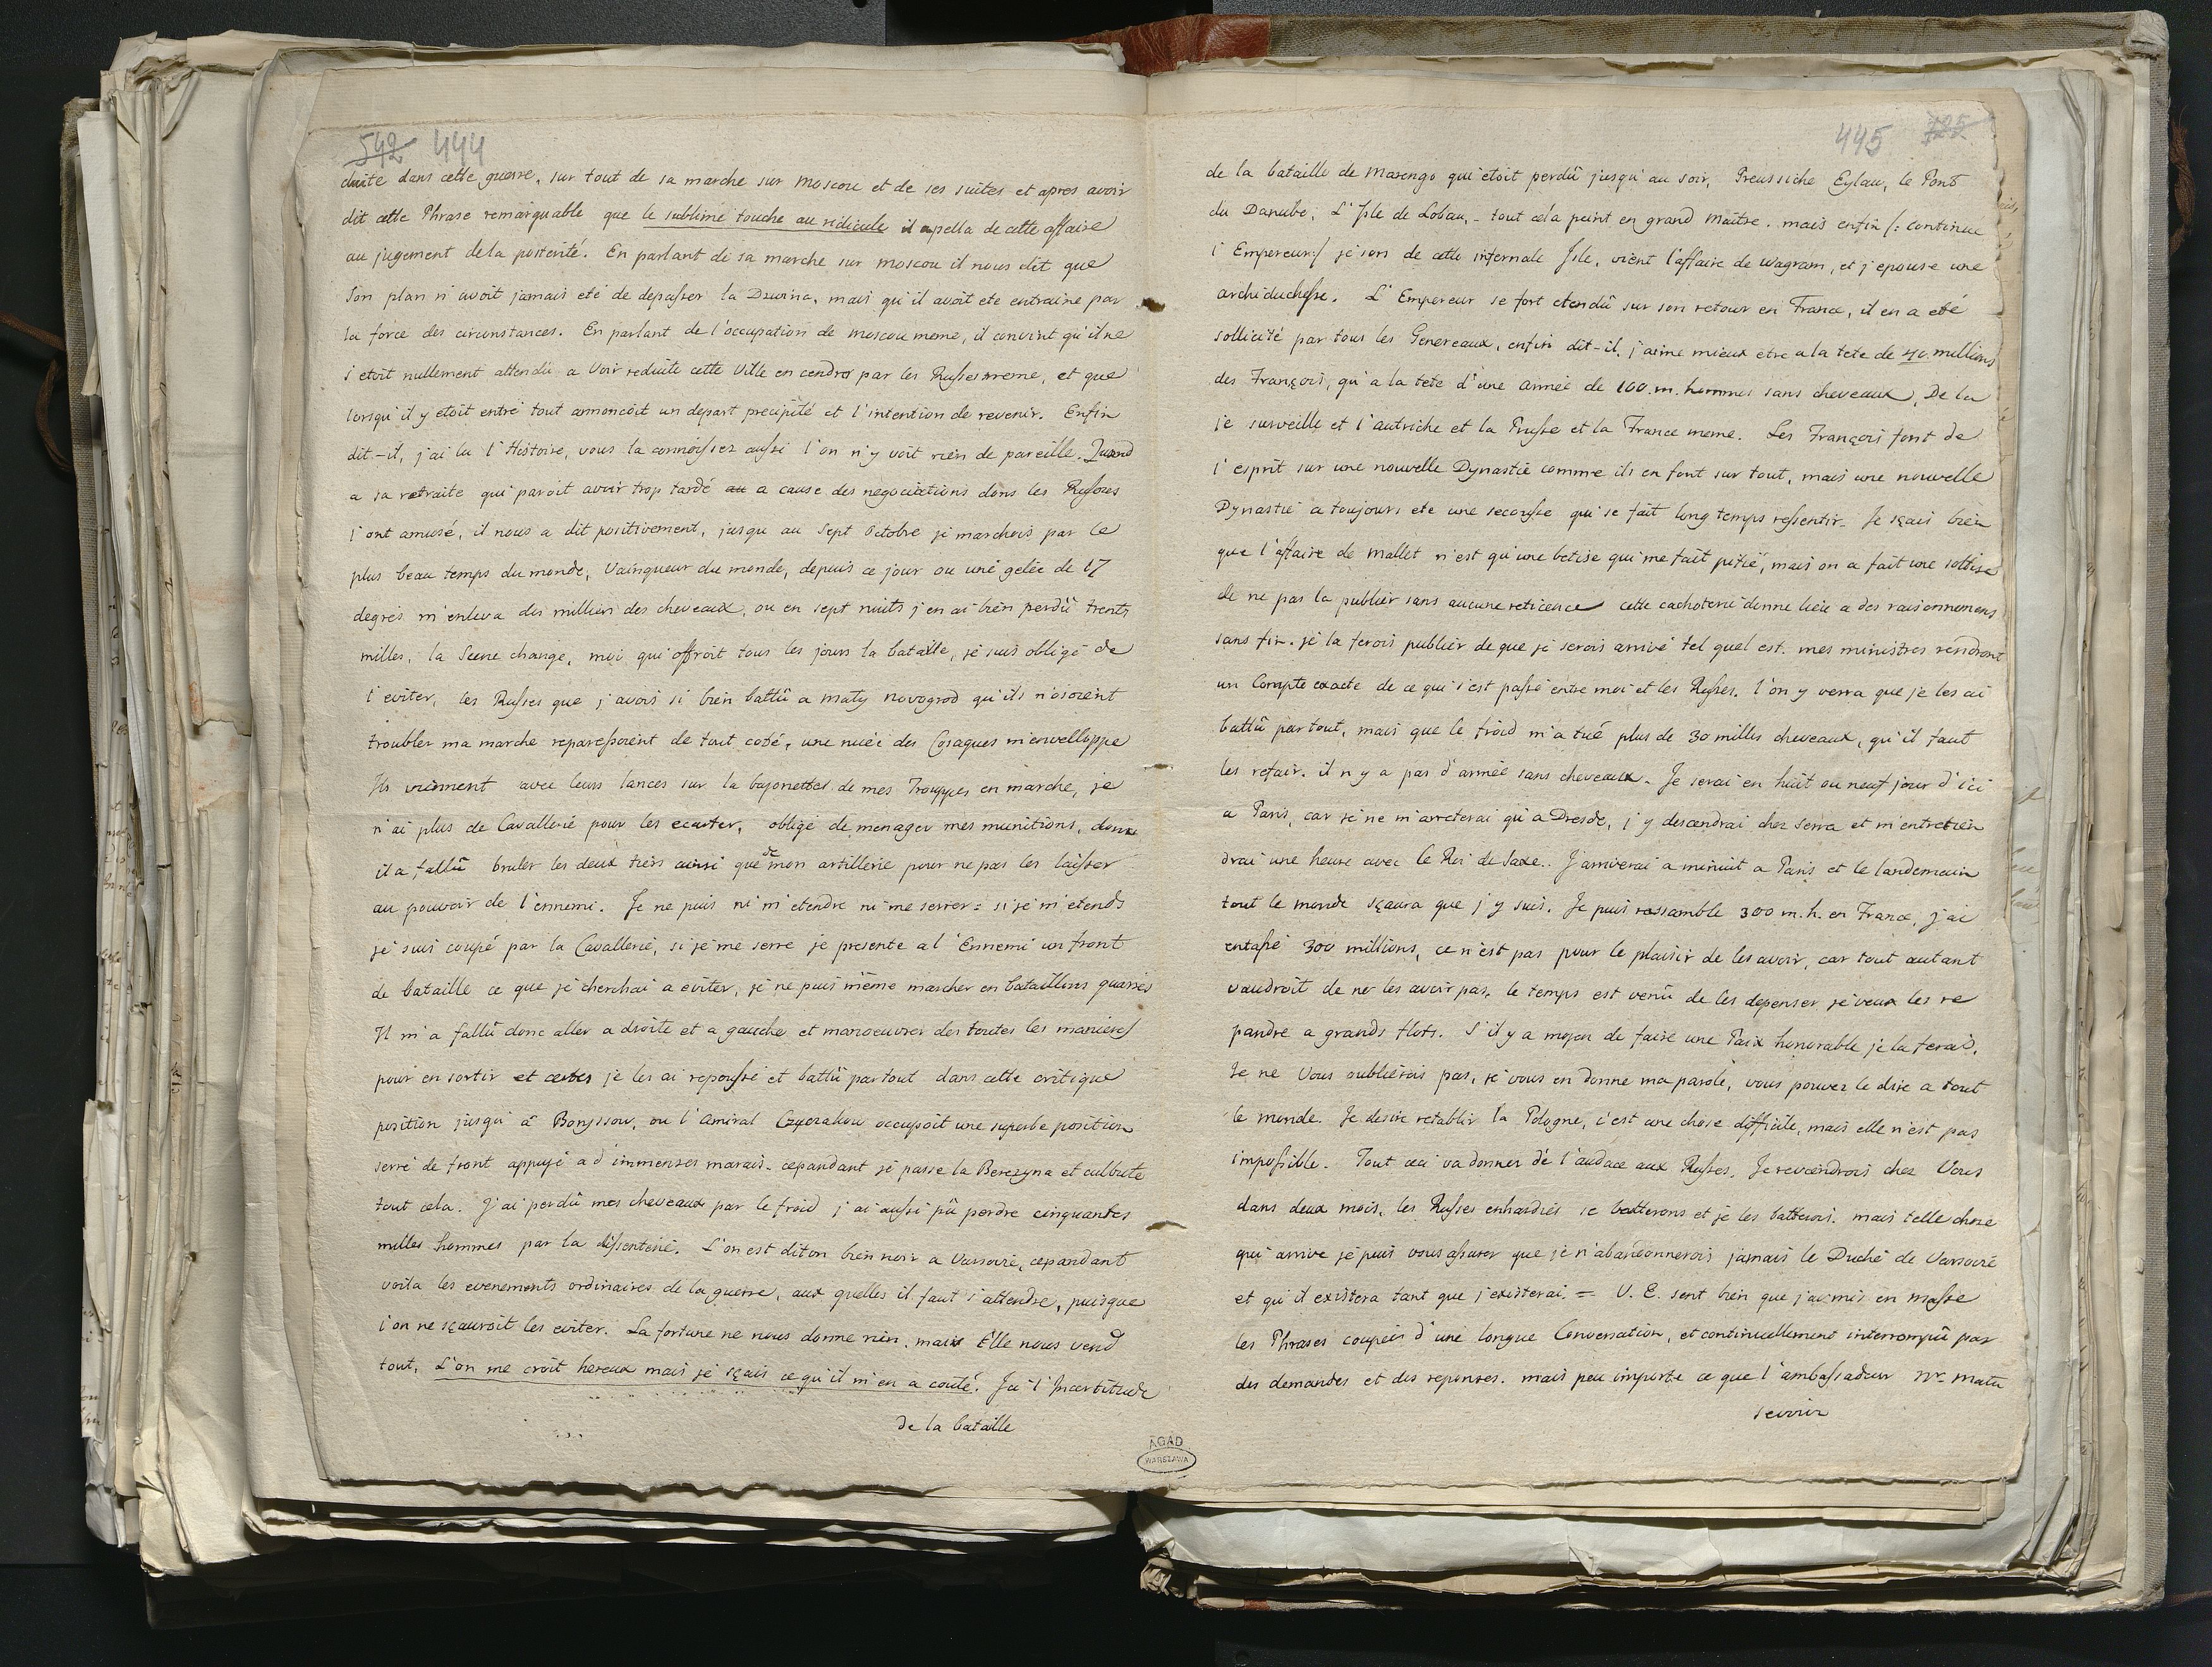 542 444
duite dans cette guerre, sur tout de sa marche sur Moscou et de ses suites et apres avoir
dit cette Phrase remarquable que le sublime touche au ridicule il apella de cette affaire
au jugement dela posterité. En parlant de sa marche sur Moscou il nous dit que
Son plan n'avoit jamais eté de depasser la Dzwina, mais qu'il avoit ete entrainé par
la force des circonstances. En parlant de l'occupation de Moscou meme, il convint qu'il ne
s'etoit nullement attendû a voir reduite cette Ville en cendres par les Russes meme, et que
lorsqu'il y etoit entré tout annoncoit un depart precipité et l'intention de revenir. Enfin
dit-il, j'ai lu l'Histoire, vous la connoissez aussi l'on n'y voit rien de pareille. Quand
a sa retraite qui paroit avoir trop tardé au a cause des negociations dons les Russes
l'ont amusé, il nous a dit positivement, jusqu au Sept Octobre je marchois par le
plus beau temps du monde, Vainqueur du monde, depuis ce jour ou une gelée de 17
degres m'enleva des milliers des cheveaux, ou en sept nuits j'en ai bien perdû trente
milles, la Scene change, moi qui offroit tous les jours la bataille, je suis obligé de
l'eviter, les Russes que j'avois si bien battû a Maly novogrod qu'ils n'osoient
troubler ma marche reparessoient de tout coté, une nuée des Cosaques m'envelloppe
Ils viennent avec leurs lances sur la bajonettes de mes Trouppes en marche, je
n'ai plus de Cavallerie pour les ecarter, obligé de menager mes munitions, donc
il a fallû bruler les deux tiers ainsi que de mon artillerie pour ne pas les laisser
au pouvoir de l'ennemi. Je ne puis ni m'etendre ni me serrer = si je m'etends
je suis coupé par la Cavallerie, si je me serre je presente a l'Ennemi un front
de bataille ce que je cherchai a eviter, je ne puis même marcher en bataillons quarrés
Il m'a fallû donc aller a droite et a gauche et manoeuvrer des toutes les manieres
pour en sortir et certes je les ai repoussé et battû partout dans cette critique
position jusqu'a Boryssow, ou l'Amiral Czyczakow occupoit une superbe position
serré de front appujé a d'immenses marais. cepandant je passe la Berezyna et culbute
tout cela. J'ai perdû mes cheveaux par le froid j'ai aussi pû perdre cinquantes
milles hommes par la dissenterie. L'on est dit on bien noir a Varsovie, cepandant
voila les evenements ordinaires de la guerre, aux quelles il faut s'attendre, puisque
l'on ne sçauroit les eviter. La fortune ne nous donne rien, mais Elle nous vend
tout. L'on me croit hereux mais je sçais ce qu'il m'en a couté. Ici l'Incertitude
de la bataille
445 725
de la bataille de Marengo qui etoit perdû jusqu'au soir, Preussiche Eylau, le Pont
du Danube, L'Isle de Lobau, - tout cela peint en grand Maître. mais enfin /: continue
l'Empereur:/ je sors de cette infernale Isle, vient l'affaire de Wagram, et j'epouse une
archiduchesse. L'Empereur se fort etendû sur son retour en France, il en a eté
sollicité par tous les Genereaux, enfin dit-il, j'aime mieux etre a la tete de 40 millions
des François, qu'a la tete d'une Armée de 100.m. hommes sans cheveaux, De la
je surveille et l'autriche et la Prusse et la France meme. Les François font de
l'esprit sur une nouvelle Dynastie comme ils en font sur tout, mais une nouvelle
Dynastie a toujours ete une secousse qui se fait long temps ressentir. Je sçais bien
que l'affaire de Mallet n'est qu'une betise qui me fait pitié, mais on a fait une sottise
de ne pas la publier sans aucune reticence cette cachoterie donne lieu a des raisonnemens
sans fin. je la ferois publier de que je serois arrivé tel quel est. mes ministres rendront
un Compte exacte de ce qui s'est passé entre moi et les Russes. l'on y verra que je les ai
battû partout, mais que le froid m'a tué plus de 30 milles cheveaux, qu'il faut
les refair. il n y a pas d'armée sans cheveaux. Je serai en huit ou neuf jour d'ici
a Paris, car je ne m'arreterai qu'a Dresde, j'y descendrai chez Serra et m'entretien
drai une heure avec le Roi de Saxe.. J'arriverai a minuit a Paris et le landemain
tout le monde sçaura que j'y suis. Je puis rassamble 300 m.h. en France, j'ai
entassé 300 millions, ce n'est pas pour le plaisir de les avoir, car tout autant
vaudroit de ne les avoir pas, le temps est venû de les depenser je veux les re
pandre a grands flots. S'il y a mojen de faire une Paix honorable je la ferai.
Je ne Vous oublierais pas, je vous en donne ma parole, vous pouvez le dire a tout
le monde. Je desire retablir la Pologne, c'est une chose difficile, mais elle n'est pas
impossible. Tout ceci va donner de l'audace aux Russes. Je reviendrois chez Vous
dans deux mois, les Russes enhardiés se batterons et je les batterois. mais telle chose
qui arrive je puis vous assurer que je n'abandonnerois jamais le Duché de Varsovie
et qu'il existera tant que j'existerai. = V. E. sent bien que j'ai mis en masse
les Phrases coupées d'une longue Conversation, et continuellement interrompû par
des demandes et des reponses. mais peu importe ce que l'ambassadeur Mr Matu
sewicz
AGAD
WARSZAWA